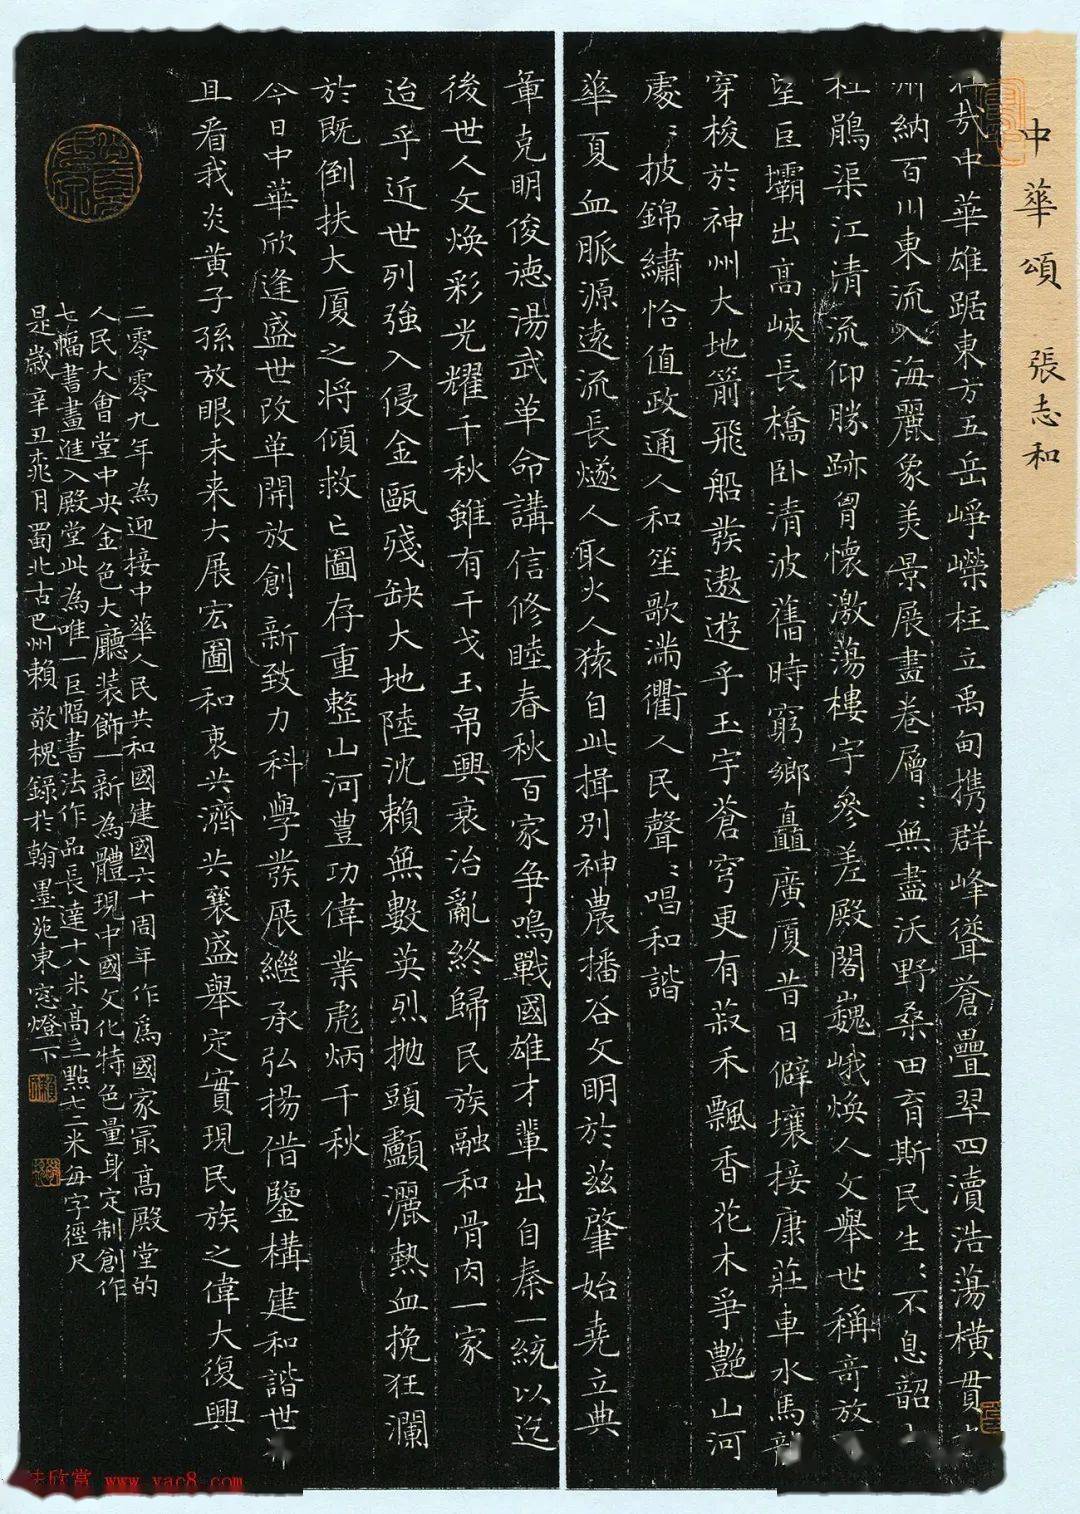 中華頌 張志和
哉中華雄踞東方五岳崢嶸柱立禹甸携群峰聳蒼疊翠四瀆浩蕩橫貫
納百川東流入海麗象美景展畫卷層〻無盡沃野桑田育斯民生〻不息韶
杜鵑渠江清流仰勝跡胃懷激蕩樓宇參差殿閣巍峨煥人文舉世稱奇放
望巨壩出高峽長橋卧清波舊時窮鄉矗廣厦昔日僻壤接康莊車水馬龍
穿梭於神州大地箭飛船發遨遊乎玉宇蒼穹更有菽禾飄香花木爭艷山河
處〻披錦繡恰值政通人和笙歌滿衢人民聲〻唱和諧
華夏血脈源遠流長燧人取火人猿自此揖别神農播谷文明於茲肇始堯立典
章克明俊德湯武革命講信修睦春秋百家争鳴戰國雄才輩出自秦一統以迄
後世人文煥彩光耀千秋雖有干戈玉帛興衰治亂終歸民族融和骨肉一家
迨乎近世列強入侵金甌殘缺大地陸沈賴無數英烈抛頭顱灑熱血挽狂瀾
於既倒扶大厦之將傾救亡圖存重整山河豐功偉業彪炳千秋
今日中華欣逢盛世改革開放創新致力科學發展繼承弘揚借鑒構建和諧世
且看我炎黄子孫放眼未来大展宏圖和衷共濟共襄盛舉定實現民族之偉大復興
二零零九年為迎接中華人民共和國建國六十周年作為國家最高殿堂的
人民大會堂中央金色大廳装飾一新為體現中國文化特色量身定制創作
七幅書畫進入殿堂此為唯一巨幅書法作品長達十八米高三點七二米每字徑尺
是歲辛丑桃月蜀北古巴州賴敬槐錄於翰墨苑東窓燈下
法欣賞 www.yac8.com